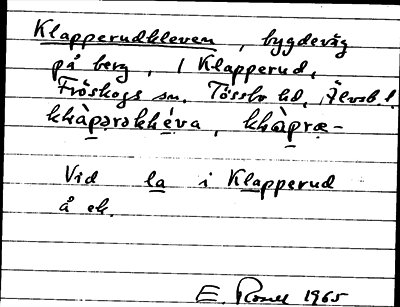 Klapperudkleven, bygdeväg
på berg, i Klapperud,
Fröskogs sn. Tössbo hd, Älvsb. l.
khàpərəkhéva, khàpræ-
Vid la i Klapperud
å ek.
E. Rosell 1965